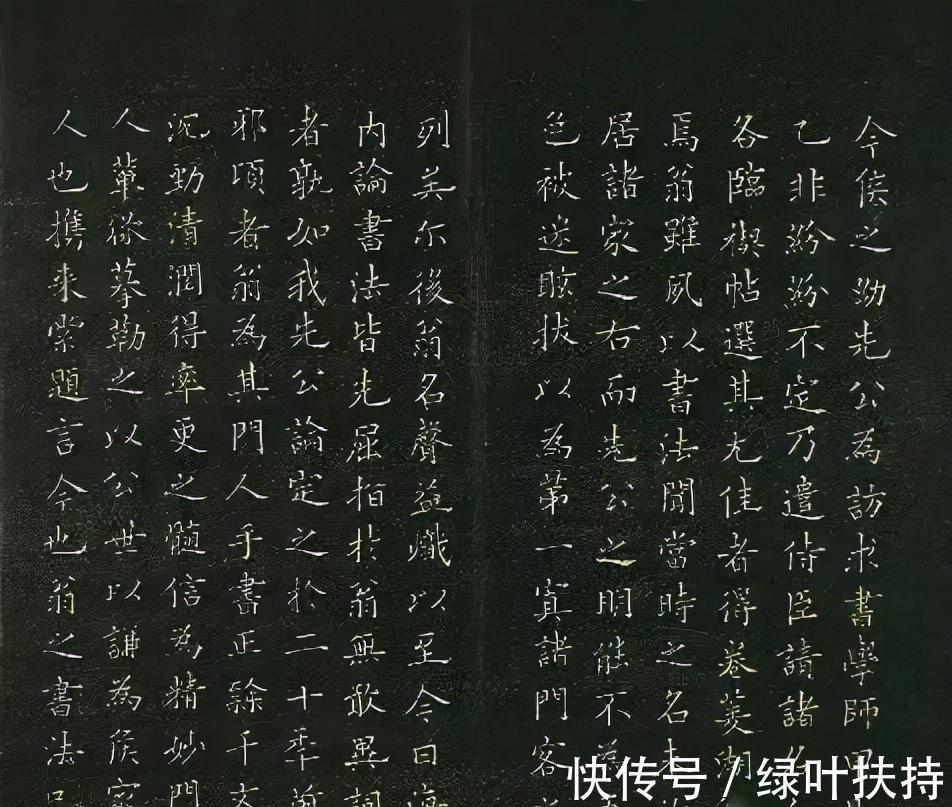 今侯之幼先公為訪求書學師甲
乙非紛紛不定乃遣侍臣請諸名
各臨禊帖選其尤佳者得卷菱湖
焉翁雖夙以書法聞當時之名未
居諸家之右而先公之明能不為
色被迷眩拔以為第一寘諸門客
列矣尔後翁名聲益熾以至今日海
内論書法皆先屈指於翁無敢異詞
者孰如我先公論定之於二十年前
邪頃者翁為其門人手書正隸千文
沉勁清潤得率更之髓信為精妙門
人輩徐摹勒之以公世以謙為侯家
人也携来索題言今也翁之書法
快传号 / 绿叶扶持